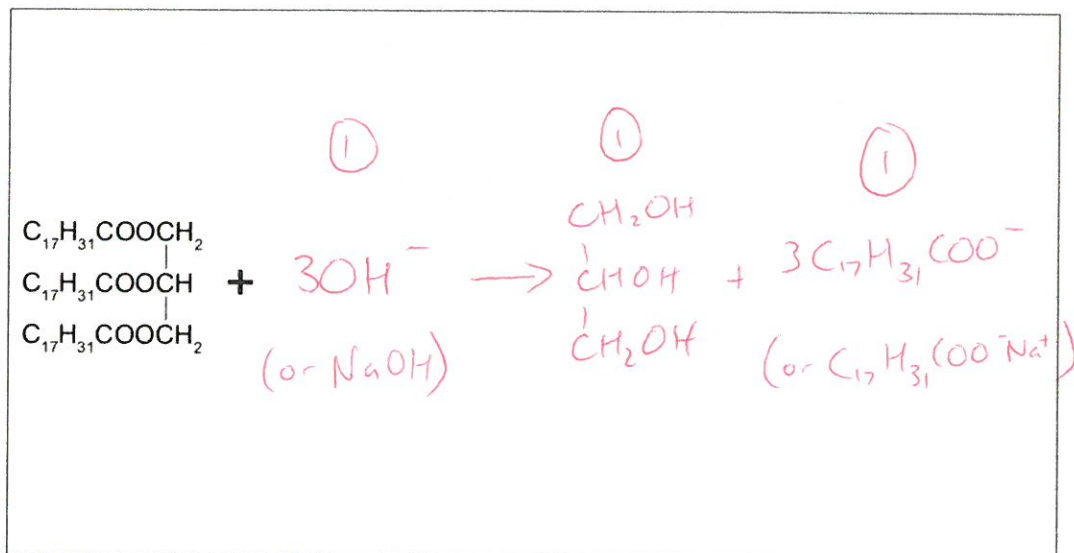 ① ① ①
C₁₇H₃₁COOCH₂
C₁₇H₃₁COOCH + 3OH⁻ → CH₂OH CHOH CH₂OH + 3C₁₇H₃₁COO⁻
C₁₇H₃₁COOCH₂
(or NaOH) (or C₁₇H₃₁COO⁻Na⁺)